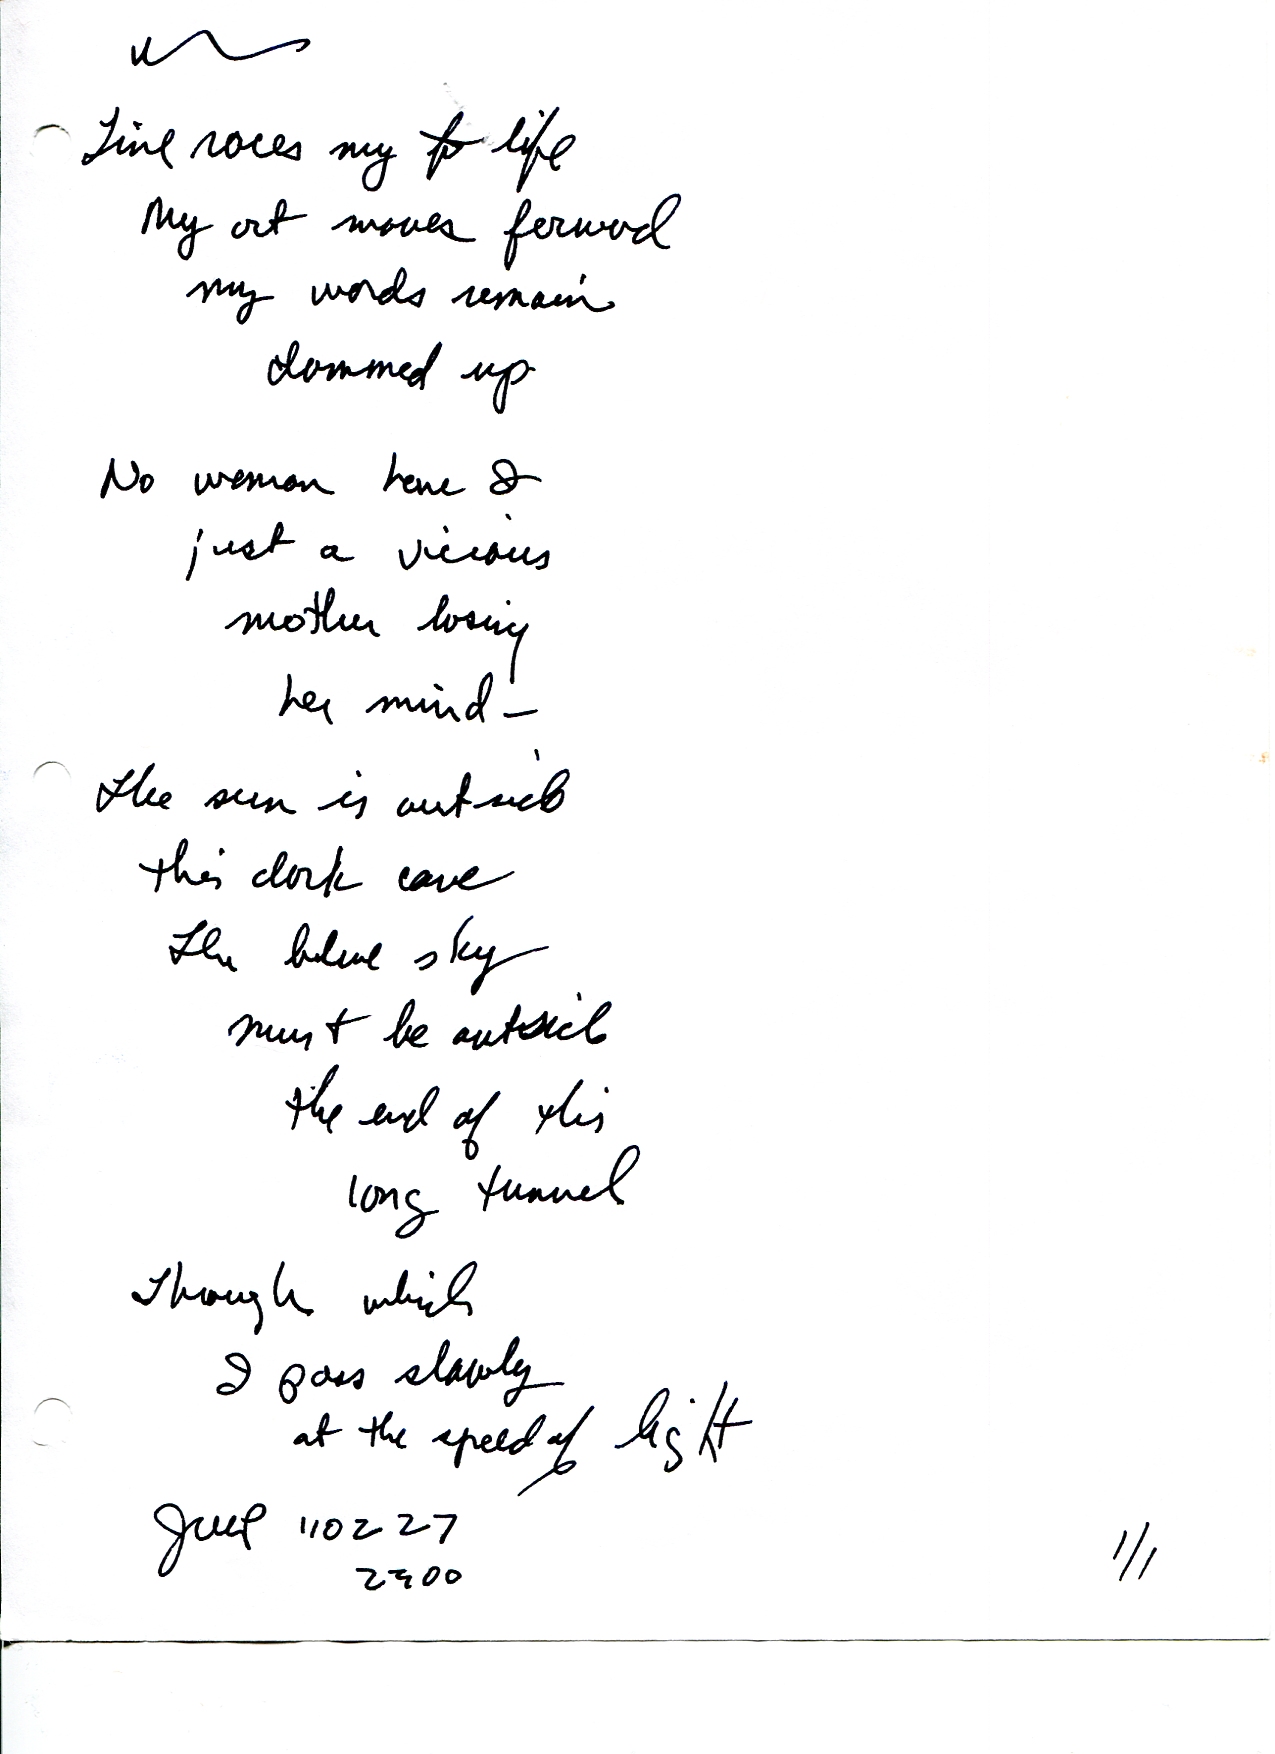 Time races my life
My art moves forward
my words remain
dammed up
No woman have I
just a vicious
mother losing
her mind —
The sun is outside
this dark cave
The blue sky
must be outside
the end of this
long tunnel
Through which
I pass slowly
at the speed of light
110227
2300
1/1